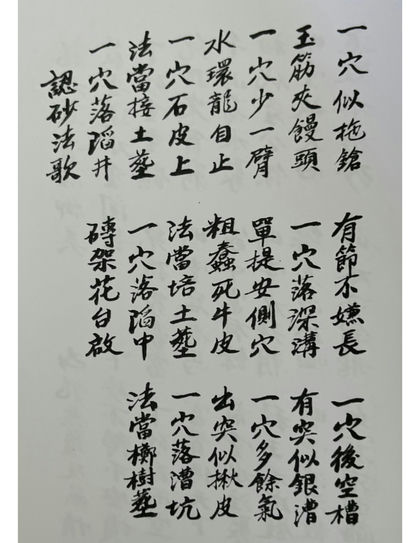 一穴似拖鎗 有節不嫌長 一穴後空槽
玉筋夾饅頭 一穴落深溝 有突似銀漕
一穴少一臂 單提安側穴 一穴多餘氣
水環龍自止 粗蠢死牛皮 出突似揪皮
一穴石皮上 法當培土塟 一穴落漕坑
法當接土塟 一穴落滔中 法當樹塟
一穴落滔井 磚架花台啟
認砂法歌